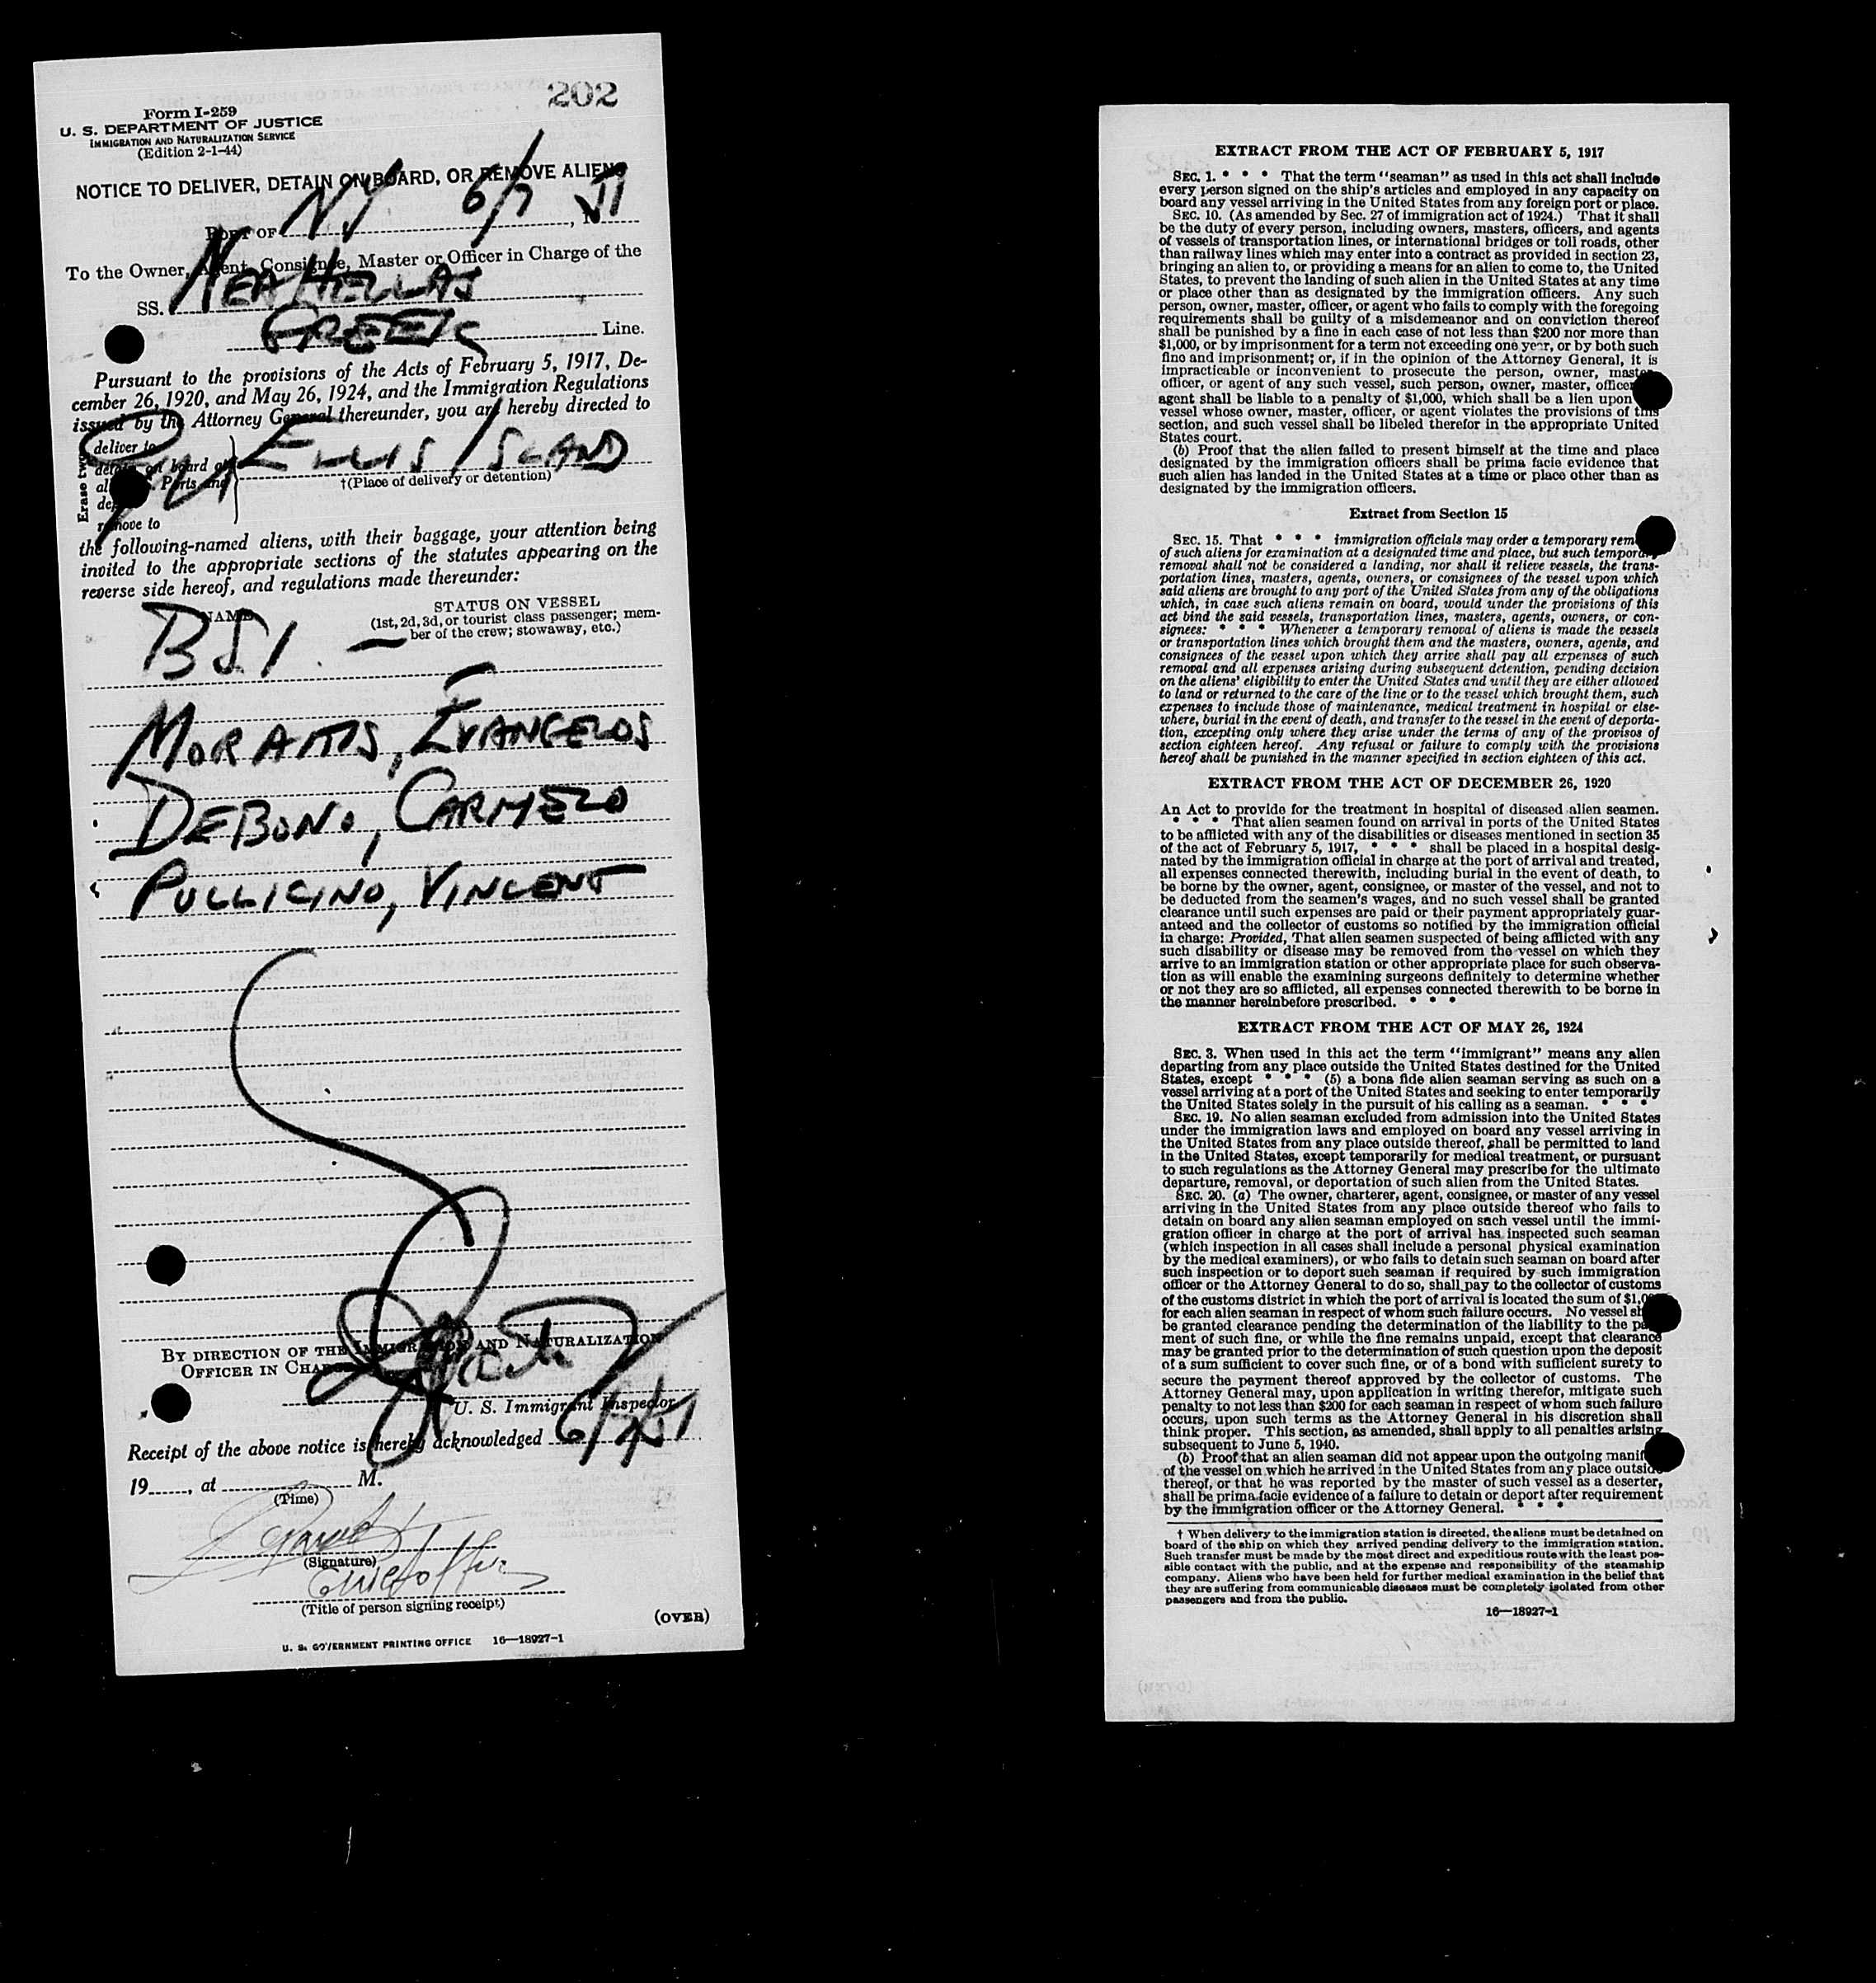 202
Form I-259
U. S. DEPARTMENT OF JUSTICE
IMMIGRATION AND NATURALIZATION SERVICE
(Edition 2-1-44)
NOTICE TO DELIVER, DETAIN ON BOARD, OR REMOVE ALIENS
PORT OF NY 6/7, 51
To the Owner, Agent, Consignee, Master or Officer in Charge of the
SS. NEA HELLAS
GREEK Line.
Pursuant to the provisions of the Acts of February 5, 1917, De-
cember 26, 1920, and May 26, 1924, and the Immigration Regulations
issued by the Attorney General thereunder, you are hereby directed to
Erase two
deliver to
detain on board at
Ports and
remove to
ELLIS ISLAND
†(Place of delivery or detention)
the following-named aliens, with their baggage, your attention being
invited to the appropriate sections of the statutes appearing on the
reverse side hereof, and regulations made thereunder:
NAME STATUS ON VESSEL
(1st, 2d, 3d, or tourist class passenger; mem-
ber of the crew; stowaway, etc.)
BSI. —
MORAITIS, EVANGELOS
DEBONO, CARMELO
PULLICINO, VINCENT
BY DIRECTION OF THE IMMIGRATION AND NATURALIZATION
OFFICER IN CHARGE
U. S. Immigrant Inspector
Receipt of the above notice is hereby acknowledged 6/7/51
19, at M.
(Time)
(Signature)
Chief officer
(Title of person signing receipt)
(OVER)
U. S. GOVERNMENT PRINTING OFFICE 16—18927-1
EXTRACT FROM THE ACT OF FEBRUARY 5, 1917
SEC. 1. * * * That the term "seaman" as used in this act shall include
every person signed on the ship's articles and employed in any capacity on
board any vessel arriving in the United States from any foreign port or place.
SEC. 10. (As amended by Sec. 27 of immigration act of 1924.) That it shall
be the duty of every person, including owners, masters, officers, and agents
of vessels of transportation lines, or international bridges or toll roads, other
than railway lines which may enter into a contract as provided in section 23,
bringing an alien to, or providing a means for an alien to come to, the United
States, to prevent the landing of such alien in the United States at any time
or place other than as designated by the immigration officers. Any such
person, owner, master, officer, or agent who fails to comply with the foregoing
requirements shall be guilty of a misdemeanor and on conviction thereof
shall be punished by a fine in each case of not less than $200 nor more than
$1,000, or by imprisonment for a term not exceeding one year, or by both such
fine and imprisonment; or, if in the opinion of the Attorney General, it is
impracticable or inconvenient to prosecute the person, owner, master,
officer, or agent of any such vessel, such person, owner, master, officer
agent shall be liable to a penalty of $1,000, which shall be a lien upon
vessel whose owner, master, officer, or agent violates the provisions of this
section, and such vessel shall be libeled therefor in the appropriate United
States court.
(b) Proof that the alien failed to present himself at the time and place
designated by the immigration officers shall be prima facie evidence that
such alien has landed in the United States at a time or place other than as
designated by the immigration officers.
Extract from Section 15
SEC. 15. That * * * immigration officials may order a temporary rem
of such aliens for examination at a designated time and place, but such temporary
removal shall not be considered a landing, nor shall it relieve vessels, the trans-
portation lines, masters, agents, owners, or consignees of the vessel upon which
said aliens are brought to any port of the United States from any of the obligations
which, in case such aliens remain on board, would under the provisions of this
act bind the said vessels, transportation lines, masters, agents, owners, or con-
signees: * * * Whenever a temporary removal of aliens is made the vessels
or transportation lines which brought them and the masters, owners, agents, and
consignees of the vessel upon which they arrive shall pay all expenses of such
removal and all expenses arising during subsequent detention, pending decision
on the aliens' eligibility to enter the United States and until they are either allowed
to land or returned to the care of the line or to the vessel which brought them, such
expenses to include those of maintenance, medical treatment in hospital or else-
where, burial in the event of death, and transfer to the vessel in the event of deporta-
tion, excepting only where they arise under the terms of any of the provisos of
section eighteen hereof. Any refusal or failure to comply with the provisions
hereof shall be punished in the manner specified in section eighteen of this act.
EXTRACT FROM THE ACT OF DECEMBER 26, 1920
An Act to provide for the treatment in hospital of diseased alien seamen.
* * * That alien seamen found on arrival in ports of the United States
to be afflicted with any of the disabilities or diseases mentioned in section 35
of the act of February 5, 1917, * * * shall be placed in a hospital desig-
nated by the immigration official in charge at the port of arrival and treated,
all expenses connected therewith, including burial in the event of death, to
be borne by the owner, agent, consignee, or master of the vessel, and not to
be deducted from the seamen's wages, and no such vessel shall be granted
clearance until such expenses are paid or their payment appropriately guar-
anteed and the collector of customs so notified by the immigration official
in charge: Provided, That alien seamen suspected of being afflicted with any
such disability or disease may be removed from the vessel on which they
arrive to an immigration station or other appropriate place for such observa-
tion as will enable the examining surgeons definitely to determine whether
or not they are so afflicted, all expenses connected therewith to be borne in
the manner hereinbefore prescribed. * * *
EXTRACT FROM THE ACT OF MAY 26, 1924
SEC. 3. When used in this act the term "immigrant" means any alien
departing from any place outside the United States destined for the United
States, except * * * (5) a bona fide alien seaman serving as such on a
vessel arriving at a port of the United States and seeking to enter temporarily
the United States solely in the pursuit of his calling as a seaman. * * *
SEC. 19. No alien seaman excluded from admission into the United States
under the immigration laws and employed on board any vessel arriving in
the United States from any place outside thereof, shall be permitted to land
in the United States, except temporarily for medical treatment, or pursuant
to such regulations as the Attorney General may prescribe for the ultimate
departure, removal, or deportation of such alien from the United States.
SEC. 20. (a) The owner, charterer, agent, consignee, or master of any vessel
arriving in the United States from any place outside thereof who fails to
detain on board any alien seaman employed on such vessel until the immi-
gration officer in charge at the port of arrival has inspected such seaman
(which inspection in all cases shall include a personal physical examination
by the medical examiners), or who fails to detain such seaman on board after
such inspection or to deport such seaman if required by such immigration
officer or the Attorney General to do so, shall pay to the collector of customs
of the customs district in which the port of arrival is located the sum of $1,0
for each alien seaman in respect of whom such failure occurs. No vessel sh
be granted clearance pending the determination of the liability to the pa
ment of such fine, or while the fine remains unpaid, except that clearance
may be granted prior to the determination of such question upon the deposit
of a sum sufficient to cover such fine, or of a bond with sufficient surety to
secure the payment thereof approved by the collector of customs. The
Attorney General may, upon application in writing therefor, mitigate such
penalty to not less than $200 for each seaman in respect of whom such failure
occurs, upon such terms as the Attorney General in his discretion shall
think proper. This section, as amended, shall apply to all penalties arising
subsequent to June 5, 1940.
(b) Proof that an alien seaman did not appear upon the outgoing manif
of the vessel on which he arrived in the United States from any place outside
thereof, or that he was reported by the master of such vessel as a deserter,
shall be prima facie evidence of a failure to detain or deport after requirement
by the immigration officer or the Attorney General. * * *
† When delivery to the immigration station is directed, the aliens must be detained on
board of the ship on which they arrived pending delivery to the immigration station.
Such transfer must be made by the most direct and expeditious route with the least pos-
sible contact with the public, and at the expense and responsibility of the steamship
company. Aliens who have been held for further medical examination in the belief that
they are suffering from communicable diseases must be completely isolated from other
passengers and from the public.
16—18927-1